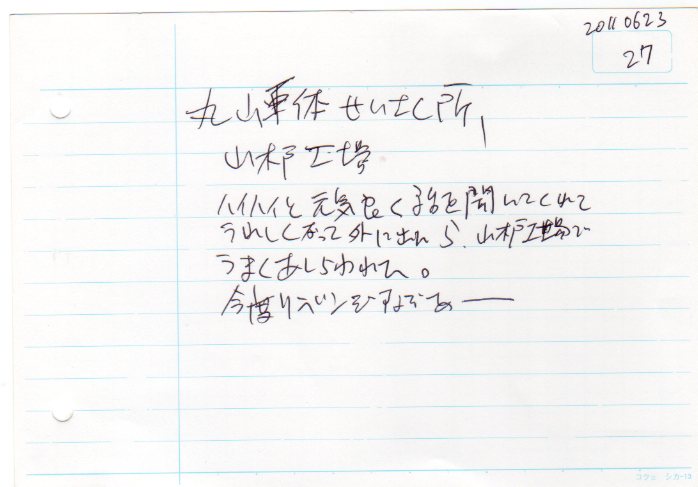 20110623
27
丸山車体せいさく所、
山木戸工場
ハイハイと元気良く話を聞いてくれて
うれしくなって外に出たら、山木戸工場で
うまくあしらわれた。
今度リベンジするぞぁー
コクヨ シカ-13